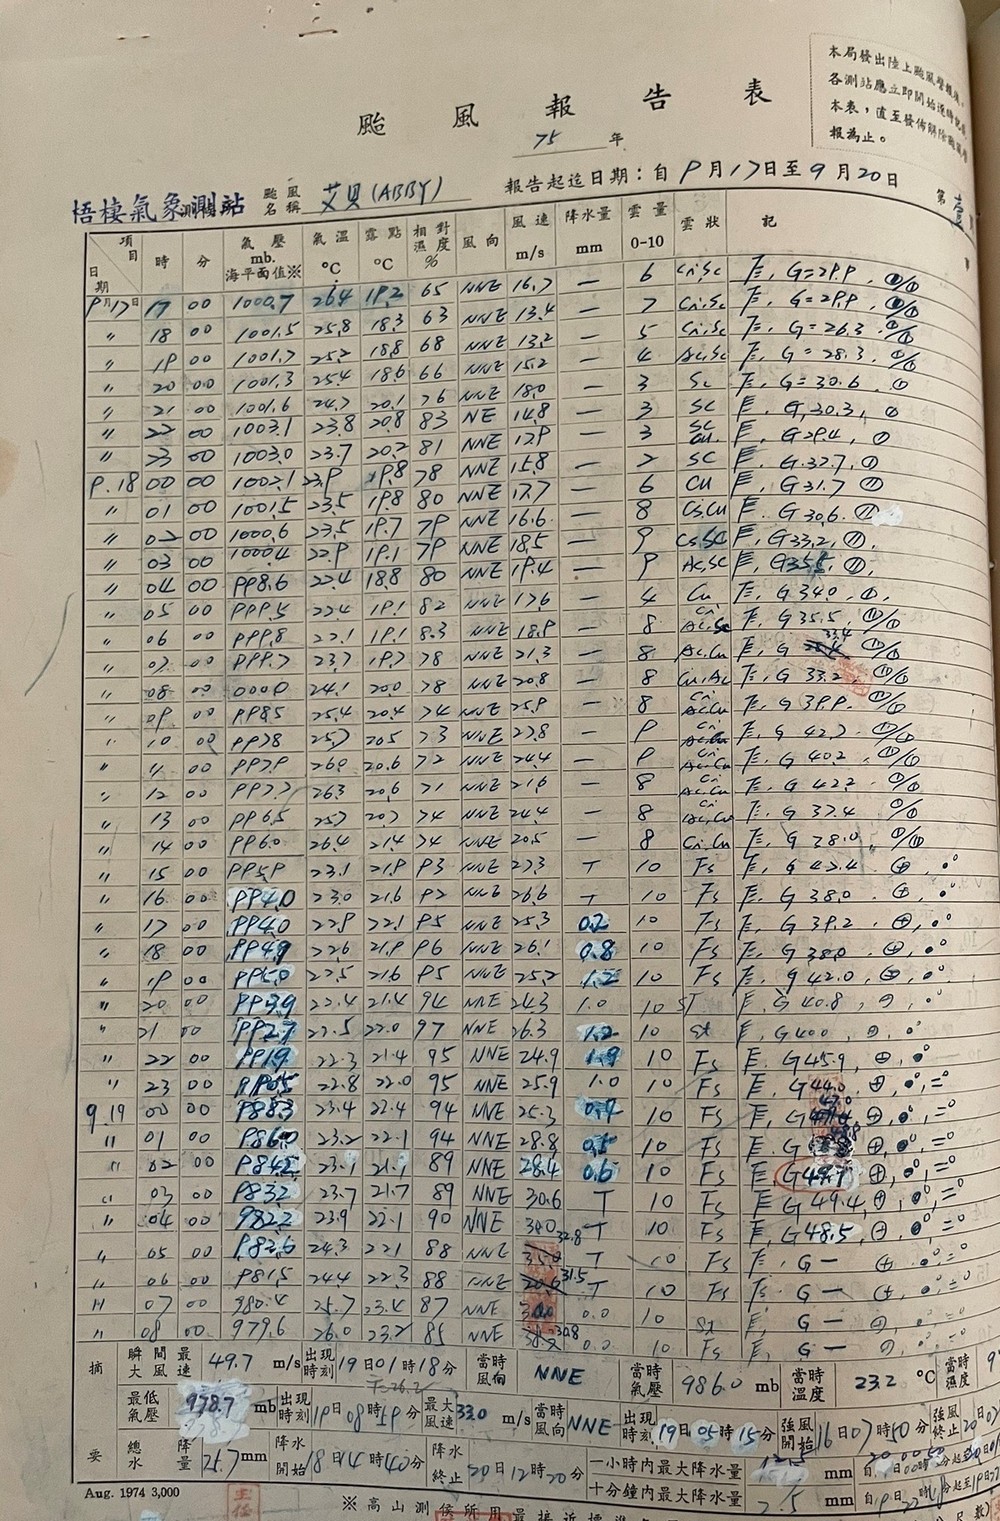 本局發出陸上颱風警報後,
各測站應立即開始逐時記錄
本表,直至發佈解除
報為止。
颱風報告表
75年
梧棲氣象測站
颱風名稱 艾貝(ABBY)
報告起迄日期:自9月17日至9月20日
第壹
項目 日期 時 分 氣壓 mb. 海平面值※ 氣溫 °C 露點 °C 相對濕度 % 風向 風速 m/s 降水量 mm 雲量 0-10 雲狀 記事
9月17日 17 00 1000.7 26.4 19.2 65 NNE 16.7 — 6 Ci,Sc G=29.9
〃 18 00 1001.5 25.8 18.3 63 NNE 13.4 — 7 Cu.Sc G=29.9
〃 19 00 1001.7 25.2 18.8 68 NNE 13.2 — 5 Ci.Sc G=26.3
〃 20 00 1001.3 25.4 18.6 66 NNE 15.2 — 4 Ac,Sc G=28.3
〃 21 00 1001.6 24.7 20.1 76 NNE 18.0 — 3 Sc G=30.6
〃 22 00 1003.1 23.8 20.8 83 NE 14.8 — 3 SC G,30.3
〃 23 00 1003.0 23.7 20.2 81 NNE 17.9 — 3 SC Cu. G29.4
9.18 00 00 1002.1 23.9 19.8 78 NNE 15.8 — 7 SC G.32.7
〃 01 00 1001.5 23.5 19.8 80 NNE 17.7 — 6 Cu G31.7
〃 02 00 1000.6 23.5 19.7 79 NNE 16.6 — 8 Cs,Cu G30.6
〃 03 00 1000.4 22.9 19.1 79 NNE 18.5 — 9 Cs,SC G33.2
〃 04 00 998.6 22.4 18.8 80 NNE 19.4 — 9 Ac,SC G35.5
〃 05 00 999.5 22.4 19.1 82 NNE 17.6 — 4 Cu G34.0
〃 06 00 999.8 22.1 19.1 83 NNE 18.9 — 8 Ci Ac.Sc G35.5
〃 07 00 999.7 23.7 19.7 78 NNE 21.3 — 8 Ac.Cu G 33.4
〃 08 00 24.1 20.0 78 NNE 20.8 — 8 Cu,Ac G 33.2
〃 09 00 998.5 25.4 20.4 74 NNE 25.9 — 8 Ci Ac.Cu G 39.9
〃 10 00 997.8 25.7 20.5 73 NNE 23.8 — 9 Ci G 42.7
〃 11 00 997.9 26.0 20.6 72 NNE 24.4 — 9 Ci Ac.Cu G 40.2
〃 12 00 997.7 26.3 20.6 71 NNE 21.6 — 8 Ci Ac.Cu G 42.2
〃 13 00 996.5 25.7 20.7 74 NNE 24.4 — 8 Ci Ac,Cu G 37.4
〃 14 00 996.0 26.4 21.4 74 NNE 20.5 — 8 Ci,Cu G 38.0
〃 15 00 995.9 23.1 21.9 93 NNE 23.3 T 10 Fs G 42.4
〃 16 00 994.0 23.0 21.6 92 NNE 26.6 T 10 Fs G 38.0
〃 17 00 994.0 22.9 22.1 95 NNE 25.3 0.2 10 Fs G 39.2
〃 18 00 994.9 22.6 21.9 96 NNE 26.1 0.8 10 Fs G 38.0
〃 19 00 995.0 22.5 21.6 95 NNE 25.2 1.2 10 Fs G 42.0
〃 20 00 993.9 22.4 21.4 94 NNE 24.3 1.0 10 ST G 40.8
〃 21 00 992.7 22.5 22.0 97 NNE 26.3 1.2 10 St G 40.0
〃 22 00 991.9 22.3 21.4 95 NNE 24.9 1.9 10 Fs G45.9
〃 23 00 990.5 22.8 22.0 95 NNE 25.9 1.0 10 Fs G44.0
9.19 00 00 988.3 23.4 22.4 94 NNE 25.3 0.9 10 Fs G 47.0
〃 01 00 986.0 23.2 22.1 94 NNE 28.8 0.5 10 Fs G 48.8
〃 02 00 984.2 23.1 21.1 89 NNE 28.4 0.6 10 Fs G49.7
〃 03 00 983.2 23.7 21.7 89 NNE 30.6 T 10 Fs G 49.4
〃 04 00 982.2 23.9 22.1 90 NNE 30.0 T 10 Fs G48.5
〃 05 00 982.6 24.3 22.1 88 NNE 32.8 T 10 Fs G —
〃 06 00 981.5 24.4 22.3 88 NNE 31.5 T 10 Fs G —
〃 07 00 980.4 25.7 23.4 87 NNE 0.0 10 St G —
〃 08 00 979.6 26.0 23.2 85 NNE 30.8 0.0 10 Fs G —
摘要
瞬間最大風速 49.7 m/s 出現時刻 19日01時18分 當時風向 NNE 當時氣壓 986.0 mb 當時溫度 23.2 °C 當時濕度
最低氣壓 978.7 mb 出現時刻 19日08時59分 最大風速 33.0 m/s 當時風向 NNE 出現時刻 19日05時15分 強風開始 16日07時50分 強風終止 20日
總降水量 25.7 mm 降水開始 18日14時40分 降水終止 20日12時20分 一小時內最大降水量 mm 自
十分鐘內最大降水量 2.5 mm 自19日
Aug. 1974 3,000
※高山測候所用最接近標準